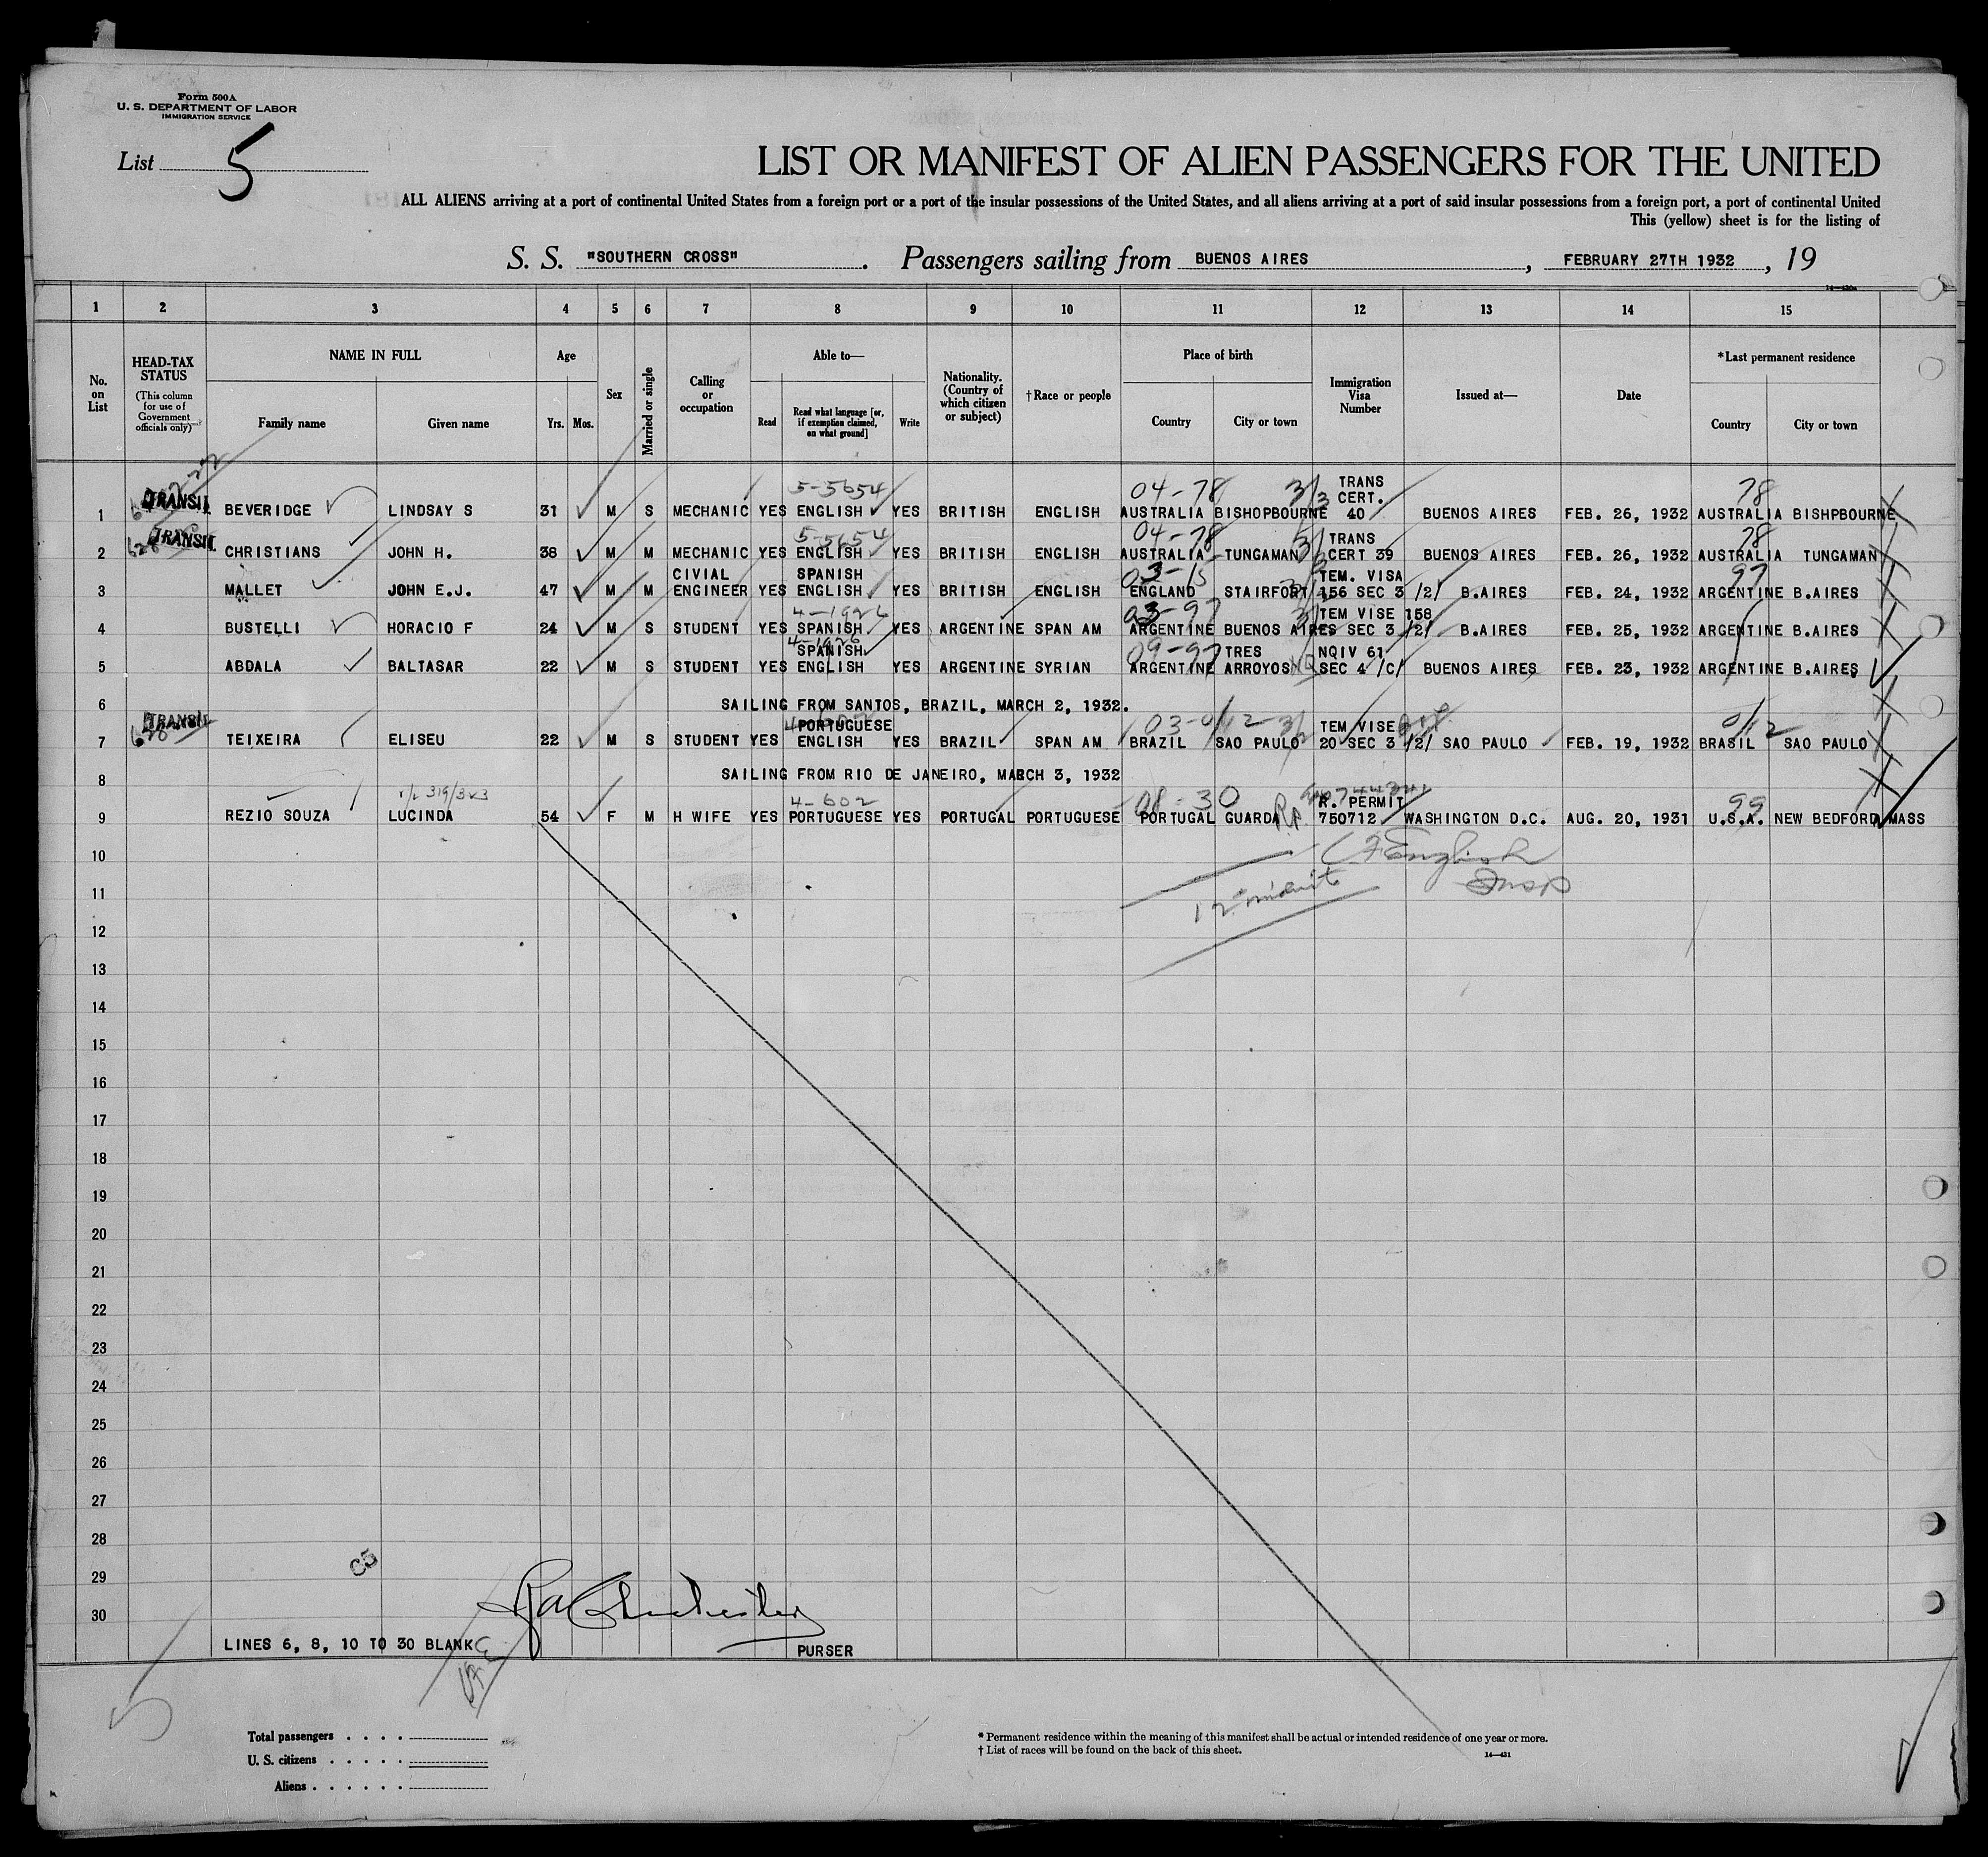 Form 500A
U. S. DEPARTMENT OF LABOR
IMMIGRATION SERVICE
List 5
LIST OR MANIFEST OF ALIEN PASSENGERS FOR THE UNITED
ALL ALIENS arriving at a port of continental United States from a foreign port or a port of the insular possessions of the United States, and all aliens arriving at a port of said insular possessions from a foreign port, a port of continental United
This (yellow) sheet is for the listing of
S. S. "SOUTHERN CROSS". Passengers sailing from BUENOS AIRES, FEBRUARY 27TH 1932, 19
1 2 3 4 5 6 7 8 9 10 11 12 13 14 15
No. on List
HEAD-TAX STATUS
(This column for use of Government officials only)
NAME IN FULL
Family name Given name
Age
Yrs. Mos.
Sex
Married or single
Calling or occupation
Able to—
Read Read what language [or, if exemption claimed, on what ground] Write
Nationality. (Country of which citizen or subject)
†Race or people
Place of birth
Country City or town
Immigration Visa Number
Issued at—
Date
*Last permanent residence
Country City or town
5-5654 04-78 3/3 TRANS CERT. 78
1 TRANSIT BEVERIDGE LINDSAY S 31 M S MECHANIC YES ENGLISH YES BRITISH ENGLISH AUSTRALIA BISHOPBOURNE 40 BUENOS AIRES FEB. 26, 1932 AUSTRALIA BISHPBOURNE
5-5654 04-78 TRANS 78
2 TRANSIT CHRISTIANS JOHN H. 38 M M MECHANIC YES ENGLISH YES BRITISH ENGLISH AUSTRALIA TUNGAMAN CERT 39 BUENOS AIRES FEB. 26, 1932 AUSTRALIA TUNGAMAN
CIVIAL SPANISH 03-15 TEM. VISA 97
3 MALLET JOHN E.J. 47 M M ENGINEER YES ENGLISH YES BRITISH ENGLISH ENGLAND STAIRFORT 156 SEC 3 /2/ B.AIRES FEB. 24, 1932 ARGENTINE B.AIRES
4-1926 03-97 TEM VISE 158
4 BUSTELLI HORACIO F 24 M S STUDENT YES SPANISH YES ARGENTINE SPAN AM ARGENTINE BUENOS AIRES SEC 3 /2/ B.AIRES FEB. 25, 1932 ARGENTINE B.AIRES
4-1926 SPANISH 09-97 TRES NQIV 61
5 ABDALA BALTASAR 22 M S STUDENT YES ENGLISH YES ARGENTINE SYRIAN ARGENTINE ARROYOS SEC 4 /C/ BUENOS AIRES FEB. 23, 1932 ARGENTINE B.AIRES
6 SAILING FROM SANTOS, BRAZIL, MARCH 2, 1932.
TRANSIT PORTUGUESE TEM VISE
7 TEIXEIRA ELISEU 22 M S STUDENT YES ENGLISH YES BRAZIL SPAN AM BRAZIL SAO PAULO 20 SEC 3 /2/ SAO PAULO FEB. 19, 1932 BRASIL SAO PAULO
8 SAILING FROM RIO DE JANEIRO, MARCH 3, 1932
4-602 08-30 R. PERMIT 99
9 REZIO SOUZA LUCINDA 54 F M H WIFE YES PORTUGUESE YES PORTUGAL PORTUGUESE PORTUGAL GUARDA 750712 WASHINGTON D.C. AUG. 20, 1931 U.S.A. NEW BEDFORD MASS
10
11
12
13
14
15
16
17
18
19
20
21
22
23
24
25
26
27
28
29
30
C5
LINES 6, 8, 10 TO 30 BLANK
PURSER
Total passengers
U. S. citizens
Aliens
* Permanent residence within the meaning of this manifest shall be actual or intended residence of one year or more.
† List of races will be found on the back of this sheet.
14—431